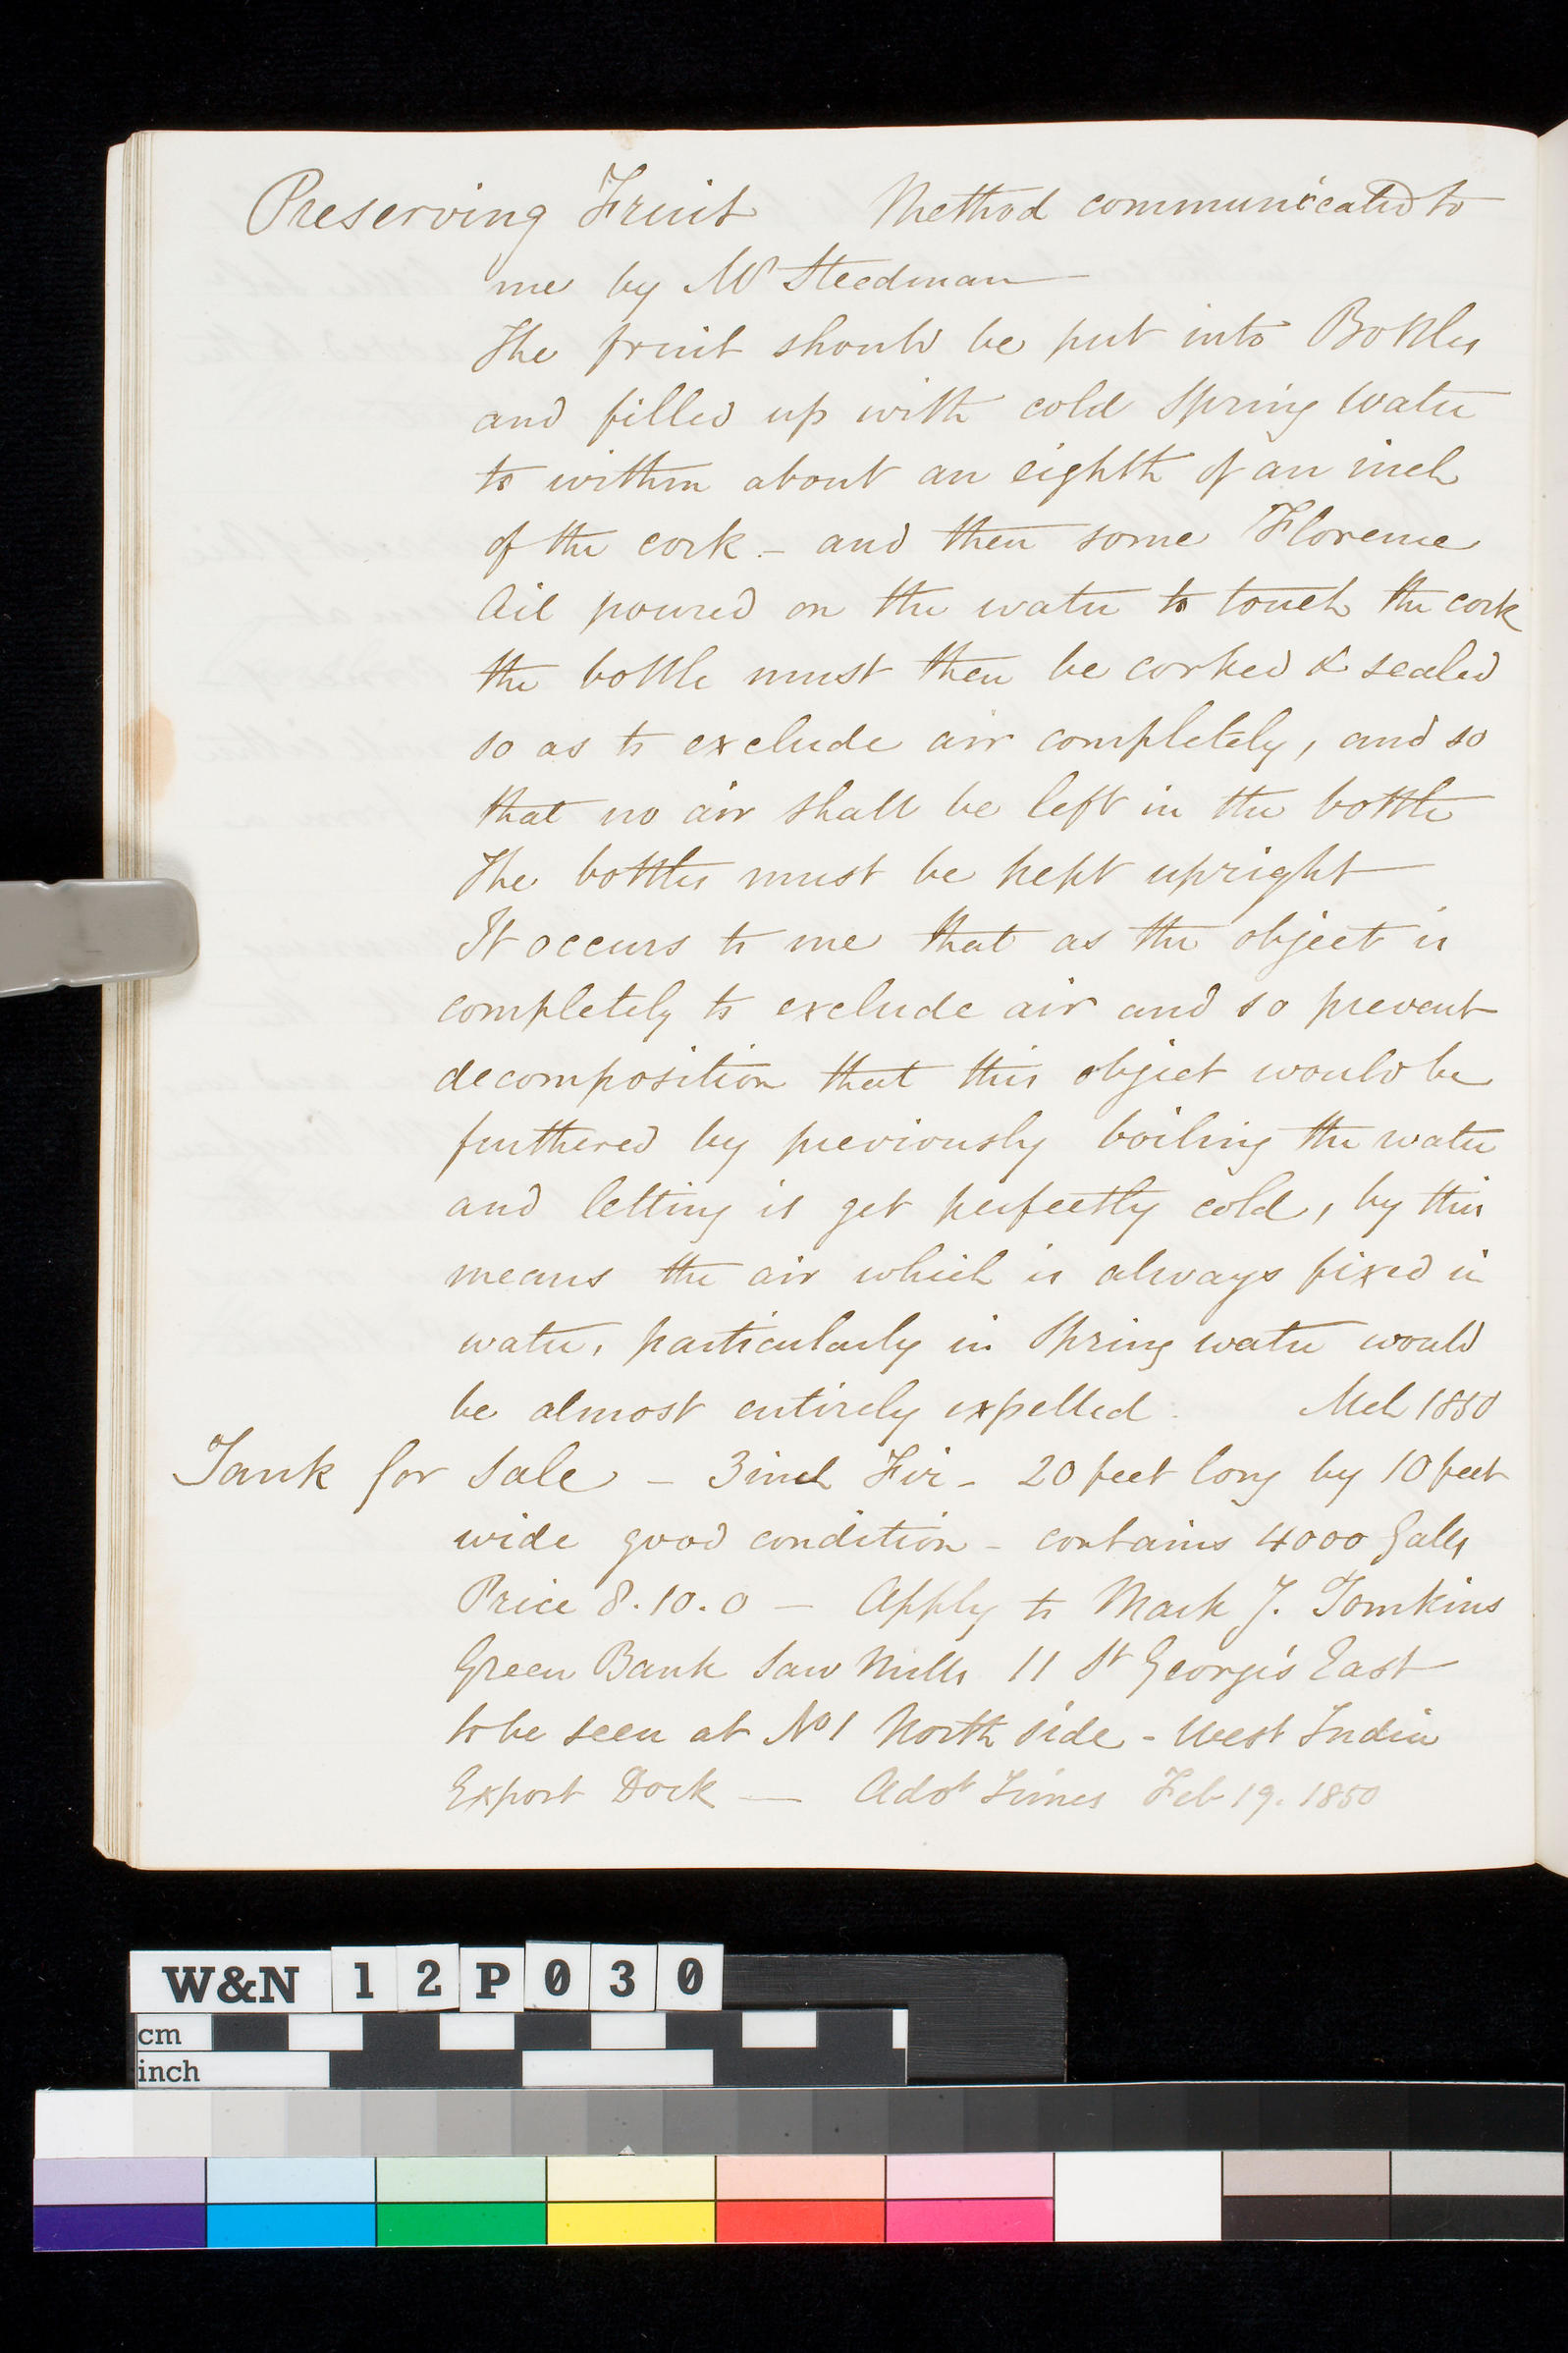 Preserving Fruit Method communicated to
me by Mr Steedman
The fruit should be put into Bottles
and filled up with cold Spring Water
to within about an eighth of an inch
of the cork - and then some Florence
Oil poured on the water to touch the cork
the bottle must then be corked & sealed
so as to exclude air completely, and so
that no air shall be left in the bottle
The bottles must be kept upright
It occurs to me that as the object is
completely to exclude air and so prevent
decomposition that this object would be
furthered by previously boiling the water
and letting it get perfectly cold, by this
means the air which is always fixed in
water, particularly in Spring water would
be almost entirely expelled. Mch 1850
Tank for Sale - 3 inch Fir - 20 feet long by 10 feet
wide good condition - contains 4000 Galls
Price 8.10.0 - Apply to Mark J. Tomkins
Green Bank Saw Mills 11 St George's East
to be seen at No 1 North side - West India
Export Dock - Advt Times Feb 19. 1850
W&N 12P030
cm
inch